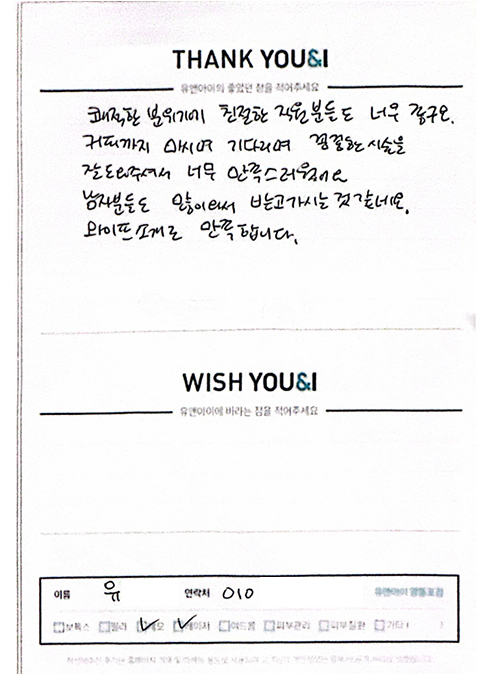 THANK YOU&I
유앤아이의 좋았던 점을 적어주세요
쾌적한 분위기에 친절한 직원분들도 너무 좋구요.
커피까지 마시며 기다리며 꼼꼼한 시술을
잘 도와주셔서 너무 만족스러워요
남자분들도 많이와서 받고가시는 것 같네요.
와이프소개로 만족합니다.
WISH YOU&I
유앤아이에 바라는 점을 적어주세요
이름 유 연락처 010 유앤아이 명동포점
보톡스 필러 제모 레이저 여드름 피부관리 피부질환 기타 ( )